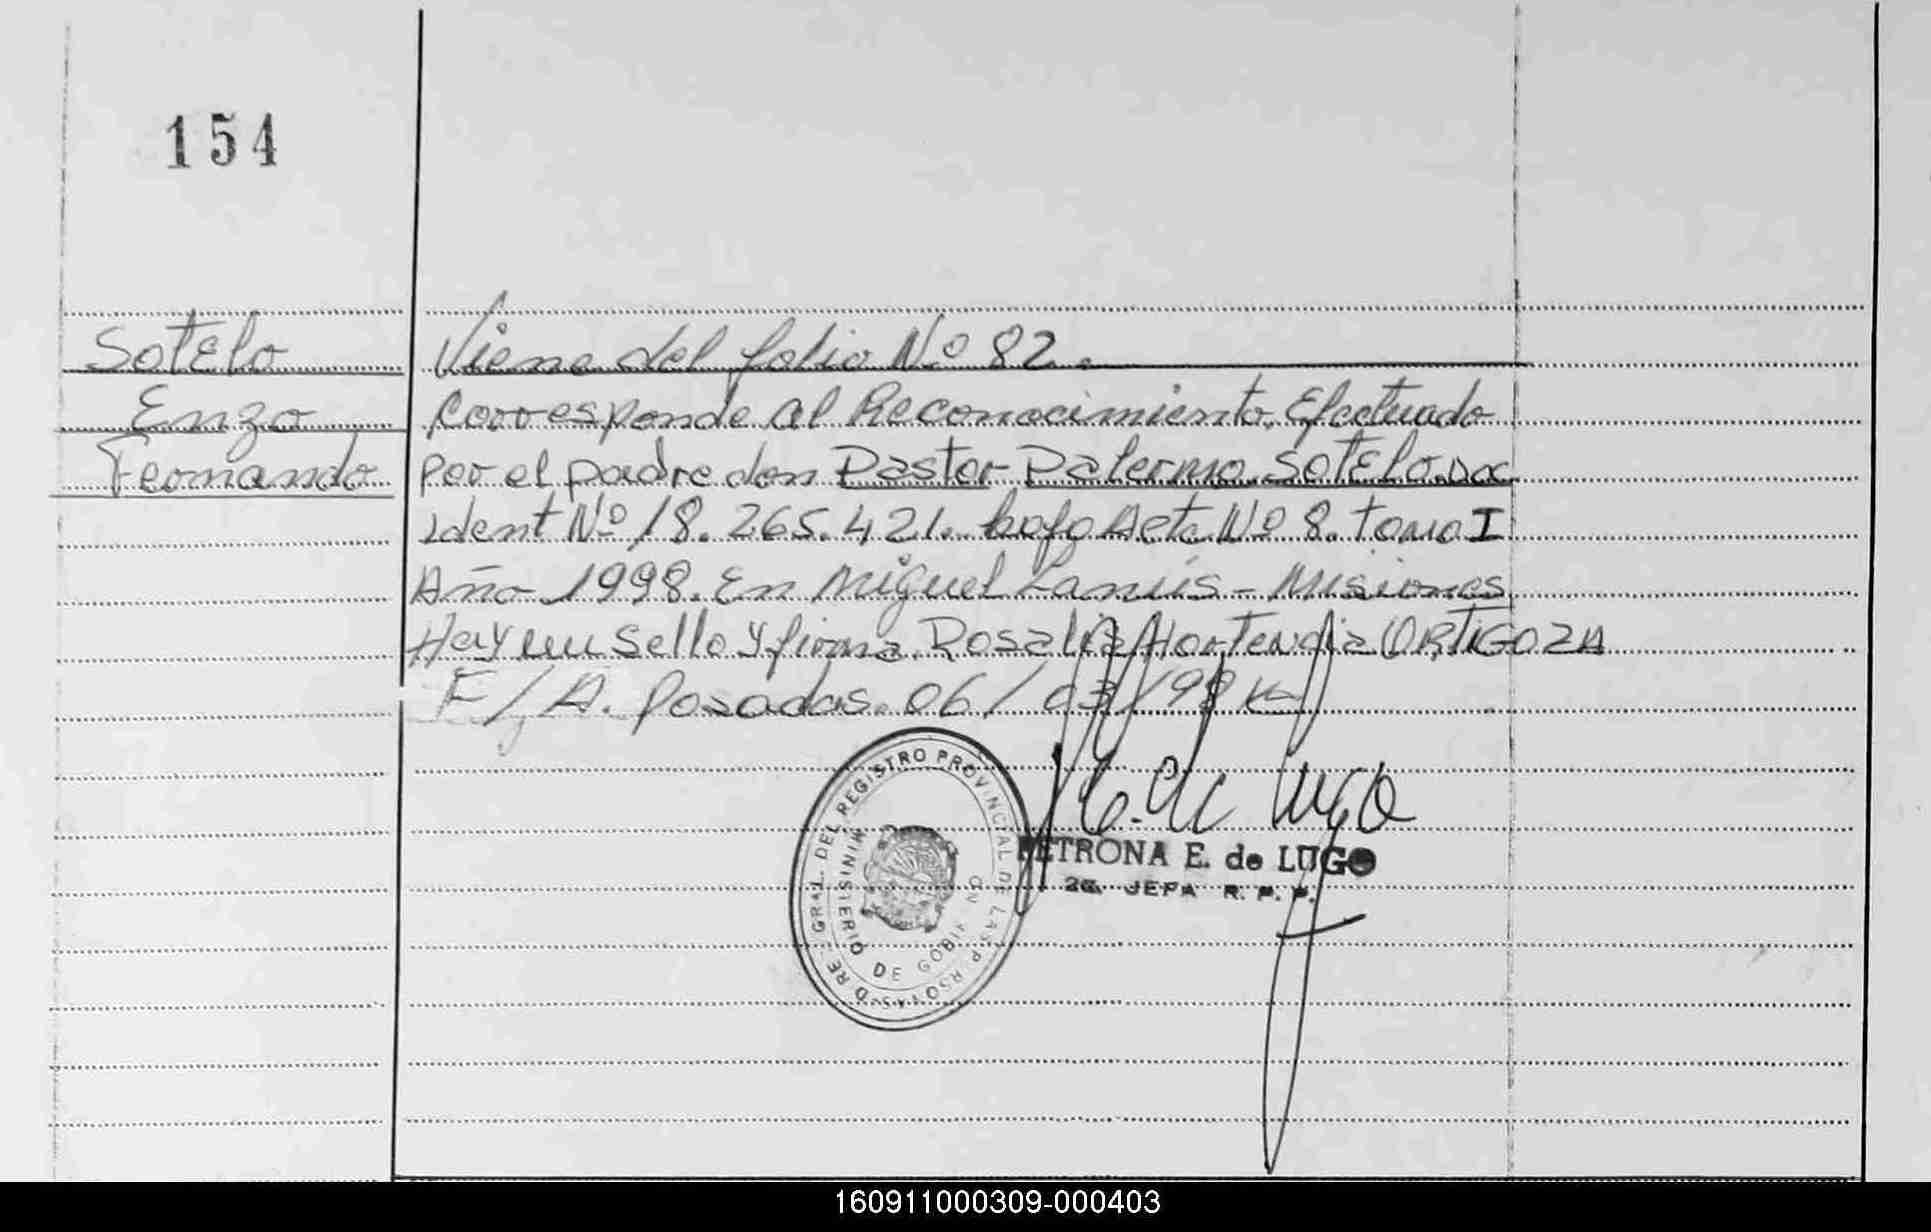 154
Sotelo
Enzo
Fernando
Viene del folio Nº 82.
Corresponde al Reconocimiento, Efectuado
por el padre don Pastor Palermo Sotelo. Doc
Ident Nº 18.265.421. bajo Acta Nº 8. Tomo I
Año 1998. En Miguel Lanús - Misiones
Hay un Sello y firma. Rosalia Hortencia ORTIGOZA
F/A. Posadas. 06/03/98
GRAL. DEL REGISTRO PROVINCIAL DE LAS P RSONAS
MINISTERIO DE GOBI NO
de Lugo
PETRONA E. de LUGO
2a. JEFA R. P. P.
160911000309-000403